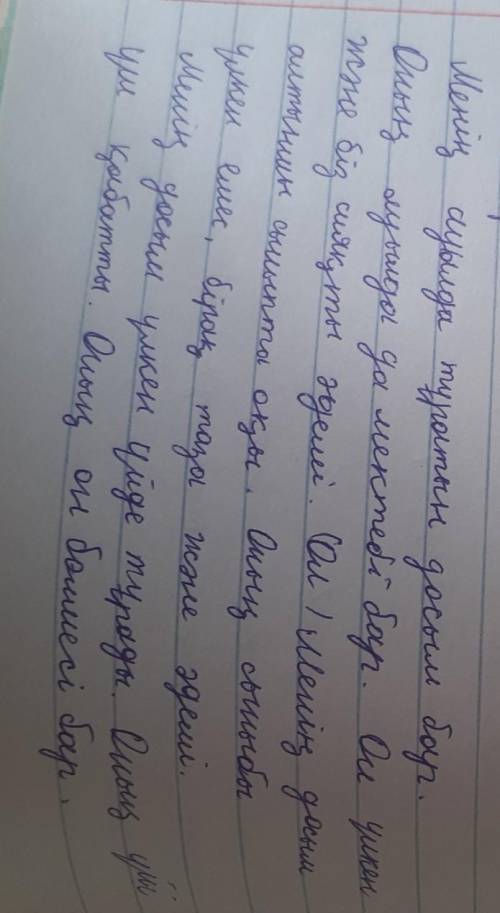 Менің ауылда тұратын досым бар.
Оның ауылда да мектебі бар. Ол үлкен
және біз сияқты әдемі. (Ол / Менің досым
алтыншы сыныпта оқы. Оның сыныбы
үлкен емес, бірақ таза және әдемі.
Менің досым үлкен үйде тұрады. Оның үйі
үш қабатты. Оның он бөлмесі бар.